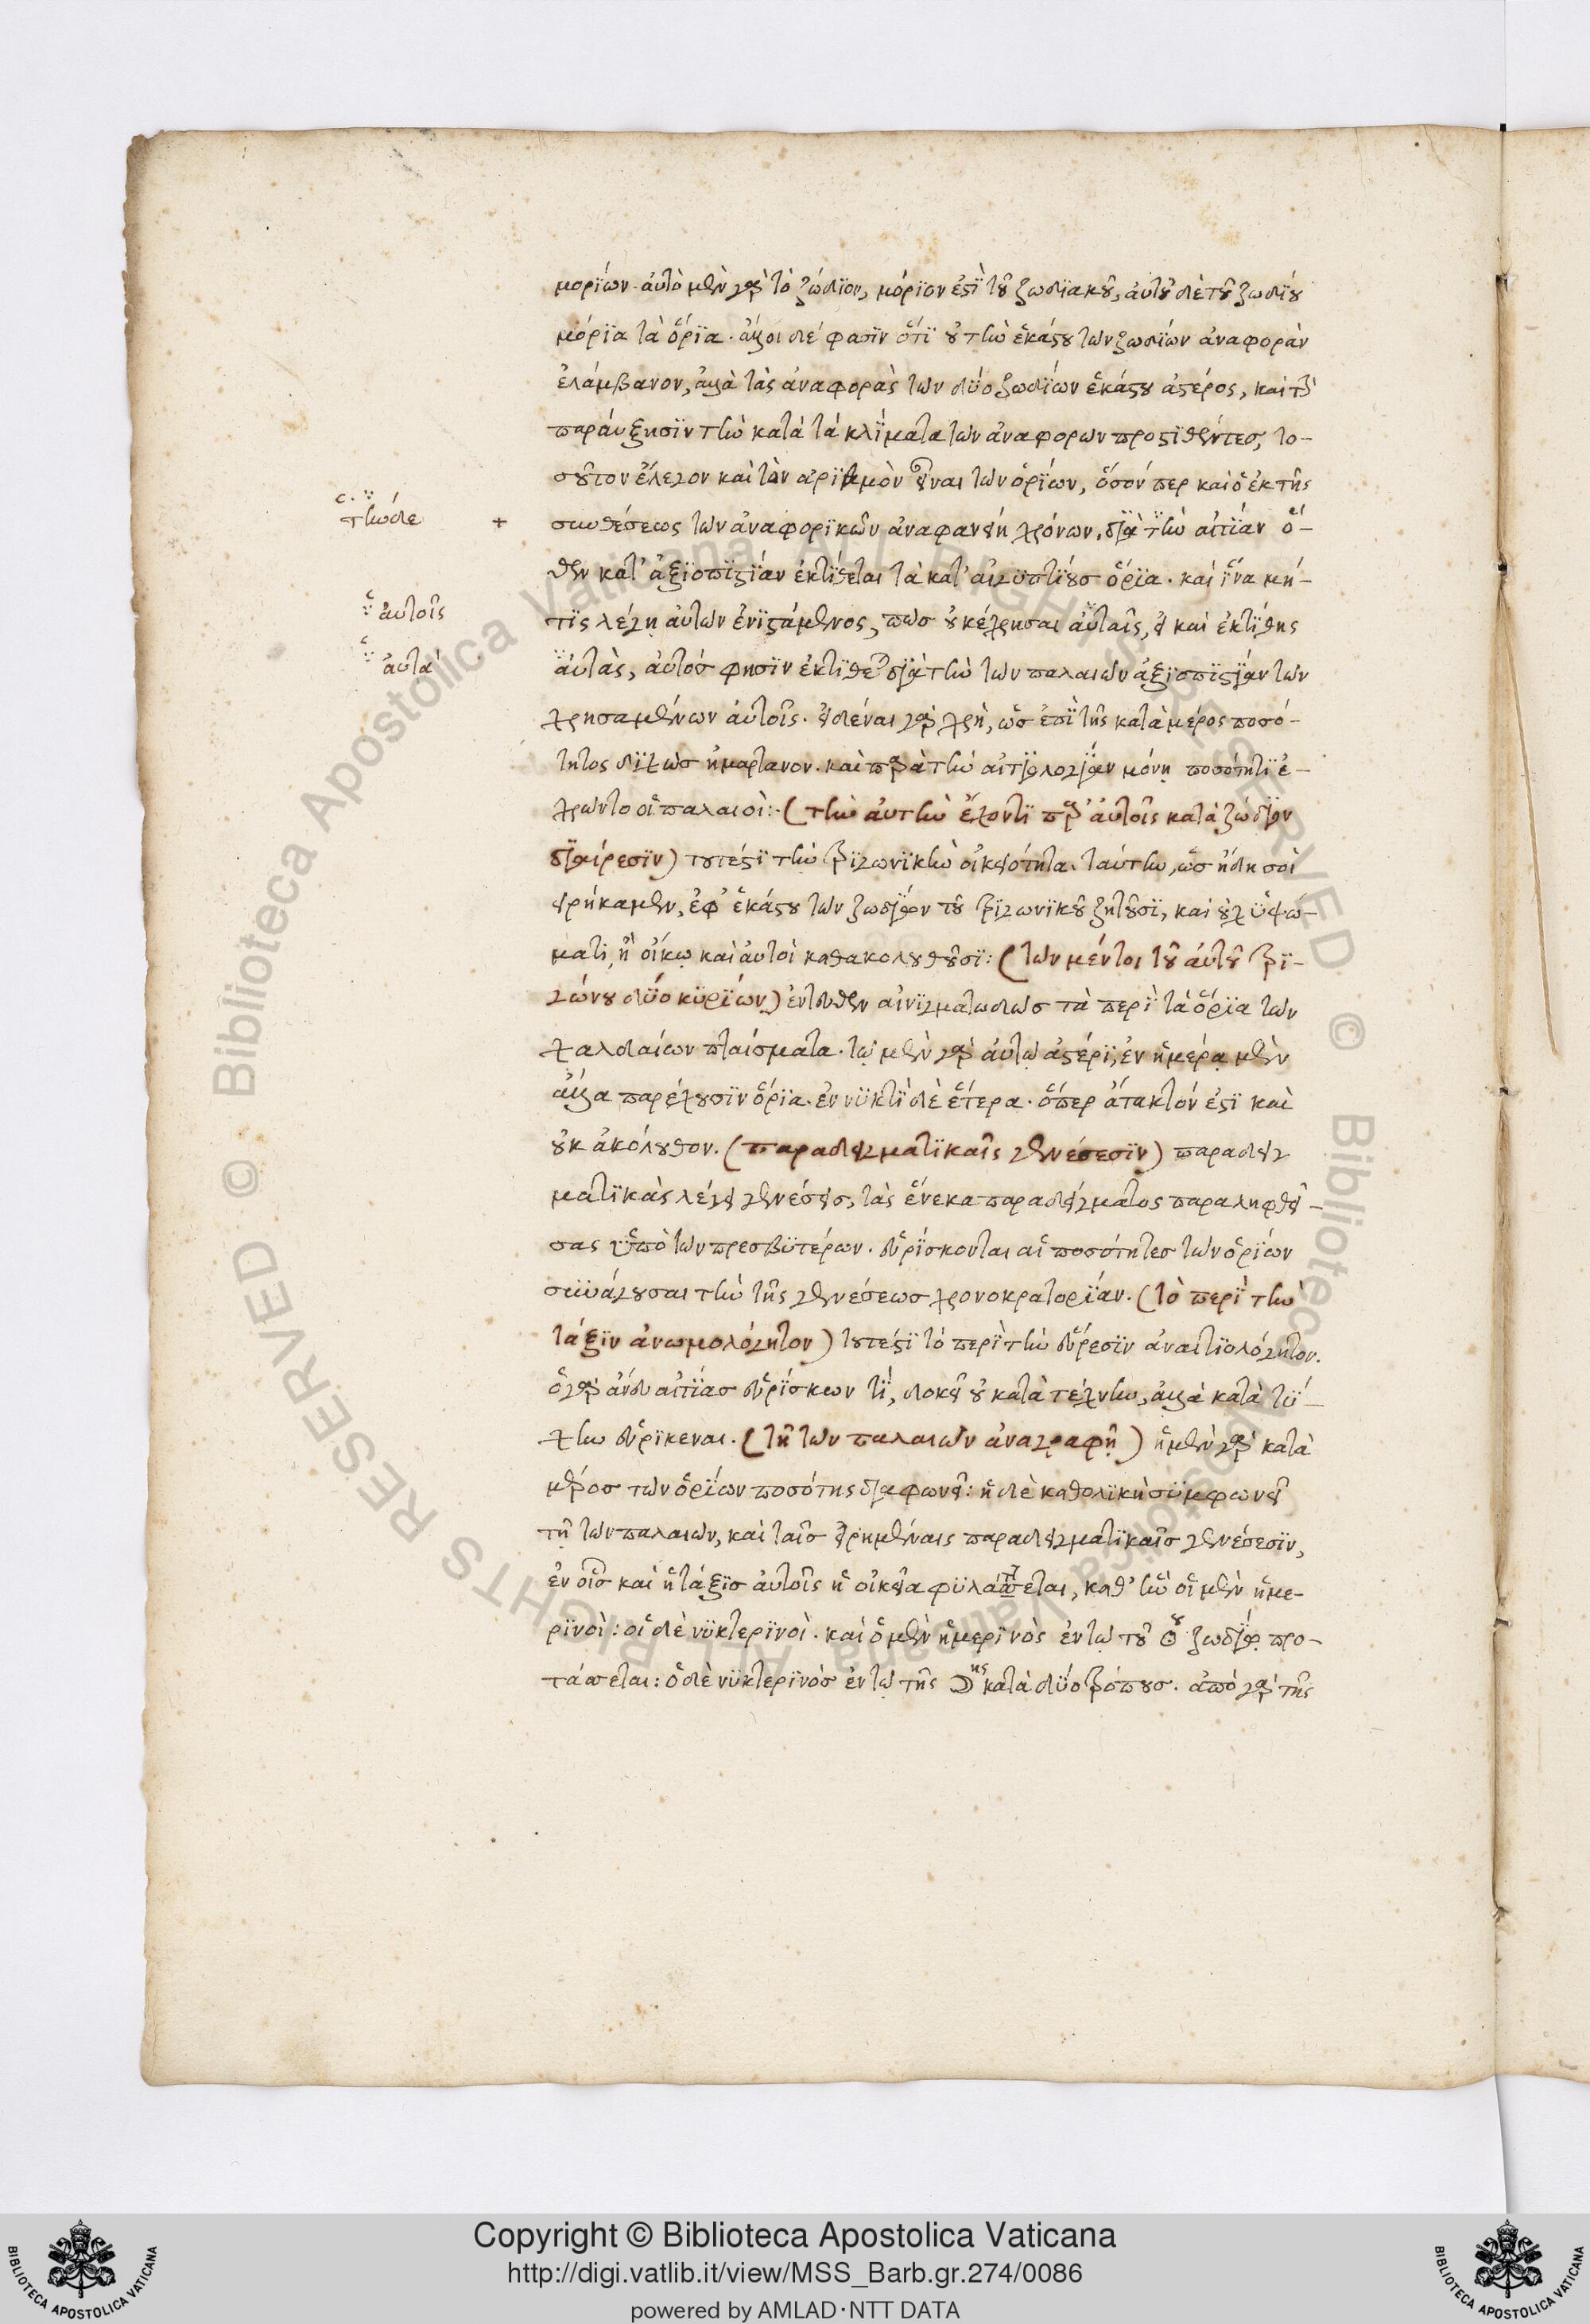 μορΐων. ἀυτὸ μὲν γὰρ τὸ ζώδϊον, μόριον ἐςῒ τοῦ ζωδϊακοῦ, ἀυτοῦ δὲ τοῦ ζωδΐου
μόρϊα τὰ ὅρϊα. ἄλλοι δέ φασϊν ὅτϊ οὐ τὴν ἑκάςου των ζωδΐων ἀναφορὰν
ἐλάμβανον, ἀλλὰ τὰς ἀναφορὰς των δύο ζωδΐων ἑκάςου ἀςέρος, καὶ τὴν
παράυξησϊν τὴν κατὰ τὰ κλΐματα των ἀναφορων προςϊθέντες, το-
σοῦτον ἔλεγον καὶ τὸν ἀριθμὸν εἶναι των ὁρΐων, ὅσόν περ καὶ ὁ ἐκ τῆς
c. τὴν δε
+ συνθέσεως των ἀναφορϊκῶν ἀναφανείη χρόνων. δϊὰ τὴν αἰτΐαν ὅ-
θεν κατ' ἀξϊοπϊςΐαν ἐκτΐθεται τὰ κατ' αἰγϋπτΐους ὅρϊα. καὶ ἵνα μή-
ἀυτοῖς
τϊς λέγῃ ἀυτων ἐνϊςάμενος, πῶς οὐ κέχρησαι ἀυταῖς, εἰ καὶ ἐκτΐθης
ἀυτά
ἀυτὰς, ἀυτός φησϊν ἐκτϊθε δϊὰ τὴν των παλαιῶν ἀξϊοπϊςΐαν των
χρησαμένων ἀυτοῖς. εἰδέναι γὰρ χρὴ, ὡς ἐπῒ τῆς κατὰ μέρος ποσό-
τητος δϊχῶς ἡμαρτανον. καὶ παρὰ τὴν αἰτϊολογΐαν μόνῃ ποσότητϊ ἐ-
χρῶντο οἱ παλαιοὶ:· (τὴν ἀυτὴν ἔχοντϊ παρ' ἀυτοῖς κατὰ ζώδϊον
δϊαίρεσϊν) τουτέςϊ τὴν τρϊγωνϊκὴν οἰκειότητα. ταύτην, ὡς ἤδη σοὶ
εἰρήκαμεν, ἐφ' ἑκάςου των ζωδΐων τοῦ τρϊγωνϊκοῦ ζητοῦσϊ, καὶ οὐχ ὑψώ-
ματι, ἢ οἴκῳ καὶ ἀυτοὶ καθακολουθοῦσϊ: (των μέντοι τοῦ ἀυτοῦ τρϊ-
γώνου δύο κϋρΐων) ἐντευθεν αἰνϊγματωδῶς τὰ περῒ τὰ ὅρϊα των
χαλδαίων πταίσματα. τῷ μὲν γὰρ ἀυτῷ ἀςέρϊ, ἐν ἡμέρᾳ μὲν
ἄλλα παρέχουσϊν ὅρϊα. ἐν νϋκτῒ δὲ ἕτερα. ὅπερ ἄτακτόν ἐςϊ καὶ
οὐκ ἀκόλουθον. (παραδειγματϊκαῖς γενέσεσϊν) παραδειγ
ματϊκὰς λέγει γενέσεις, τὰς ἕνεκα παραδείγματος παραληφθεί-
σας ὑπὸ των πρεσβϋτέρων. εὑρίσκονται αἱ ποσότητες των ὁρΐων
συνάγουσαι τὴν τῆς γενέσεως χρονοκρατορΐαν. (τὸ περῒ τὴν
τάξϊν ἀνωμολόγητον) τουτέςϊ τὸ περῒ τὴν εὕρεσϊν ἀναιτϊολόγητον.
ὁ γὰρ ἄνευ αἰτΐας εὑρΐσκων τῒ, δοκεῖ οὐ κατὰ τέχνην, ἀλλὰ κατὰ τΰ-
χην εὑρϊκεναι. (τῇ των παλαιῶν ἀναγραφῇ) ἡ μὲν γὰρ κατὰ
μέρος τῶν ὁρΐων ποσότης δϊαφωνεῖ: ἡ δὲ καθολϊκὴ σϋμφωνεῖ
τῇ των παλαιων, καὶ ταῖς εἰρημέναις παραδειγματϊκαῖς γενέσεσϊν,
ἐν οἷς καὶ ἡ τάξϊς ἀυτοῖς ἡ οἰκεία φϋλάττεται, καθ' ἣν οἱ μὲν ἡμε-
ρϊνοὶ: οἱ δὲ νϋκτερϊνοὶ. καὶ ὁ μὲν ἡμερϊνὸς ἐν τῷ τοῦ ☉ου ζωδΐῳ προ-
τάττεται: ὁ δὲ νϋκτερϊνὸς ἐν τῷ τῆς ☽ης κατὰ δύο τρόπους. ἀπὸ γὰρ τῆς
Copyright © Biblioteca Apostolica Vaticana
http://digi.vatlib.it/view/MSS_Barb.gr.274/0086
powered by AMLAD·NTT DATA